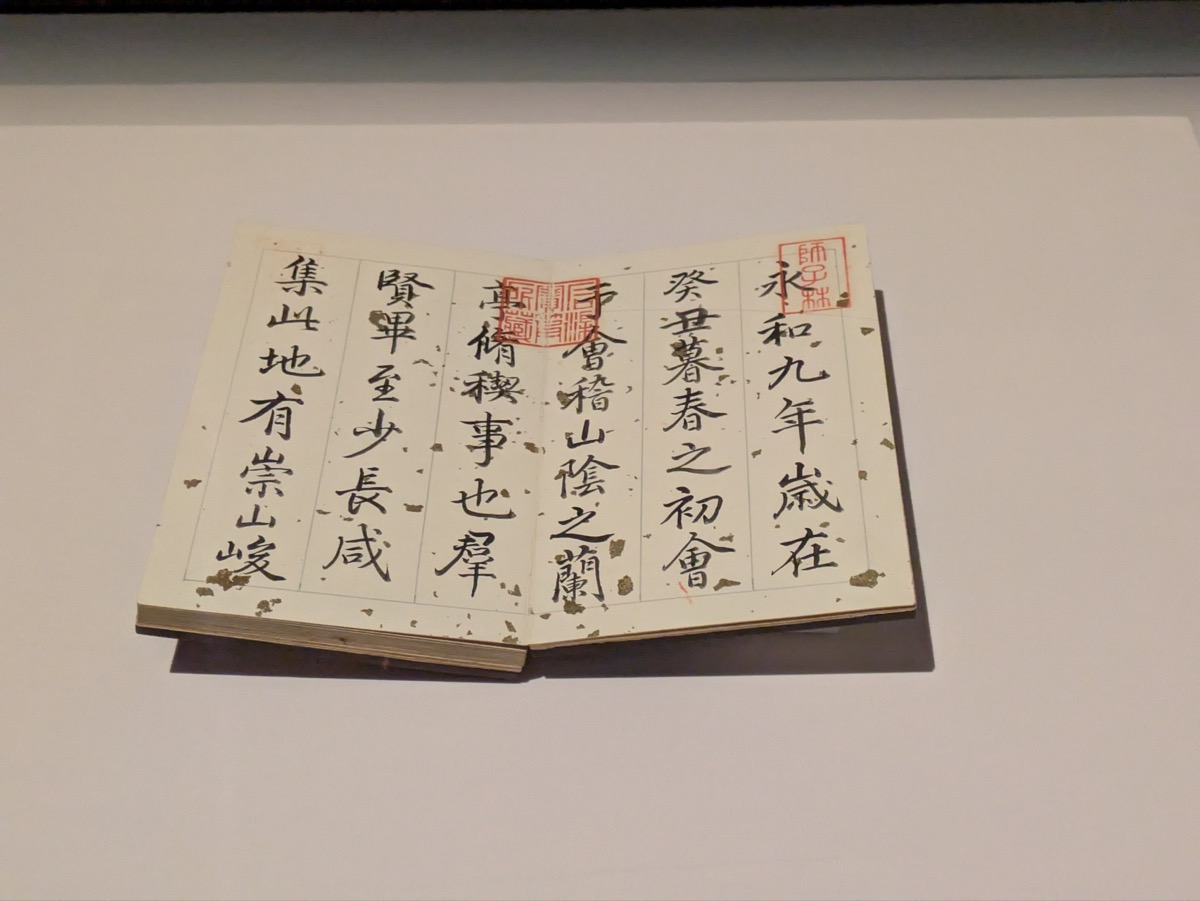 師子林
永和九年歲在
癸丑暮春之初會
于會稽山陰之蘭
亭脩稧事也羣
賢畢至少長咸
集此地有崇山峻
石渠寶笈所藏